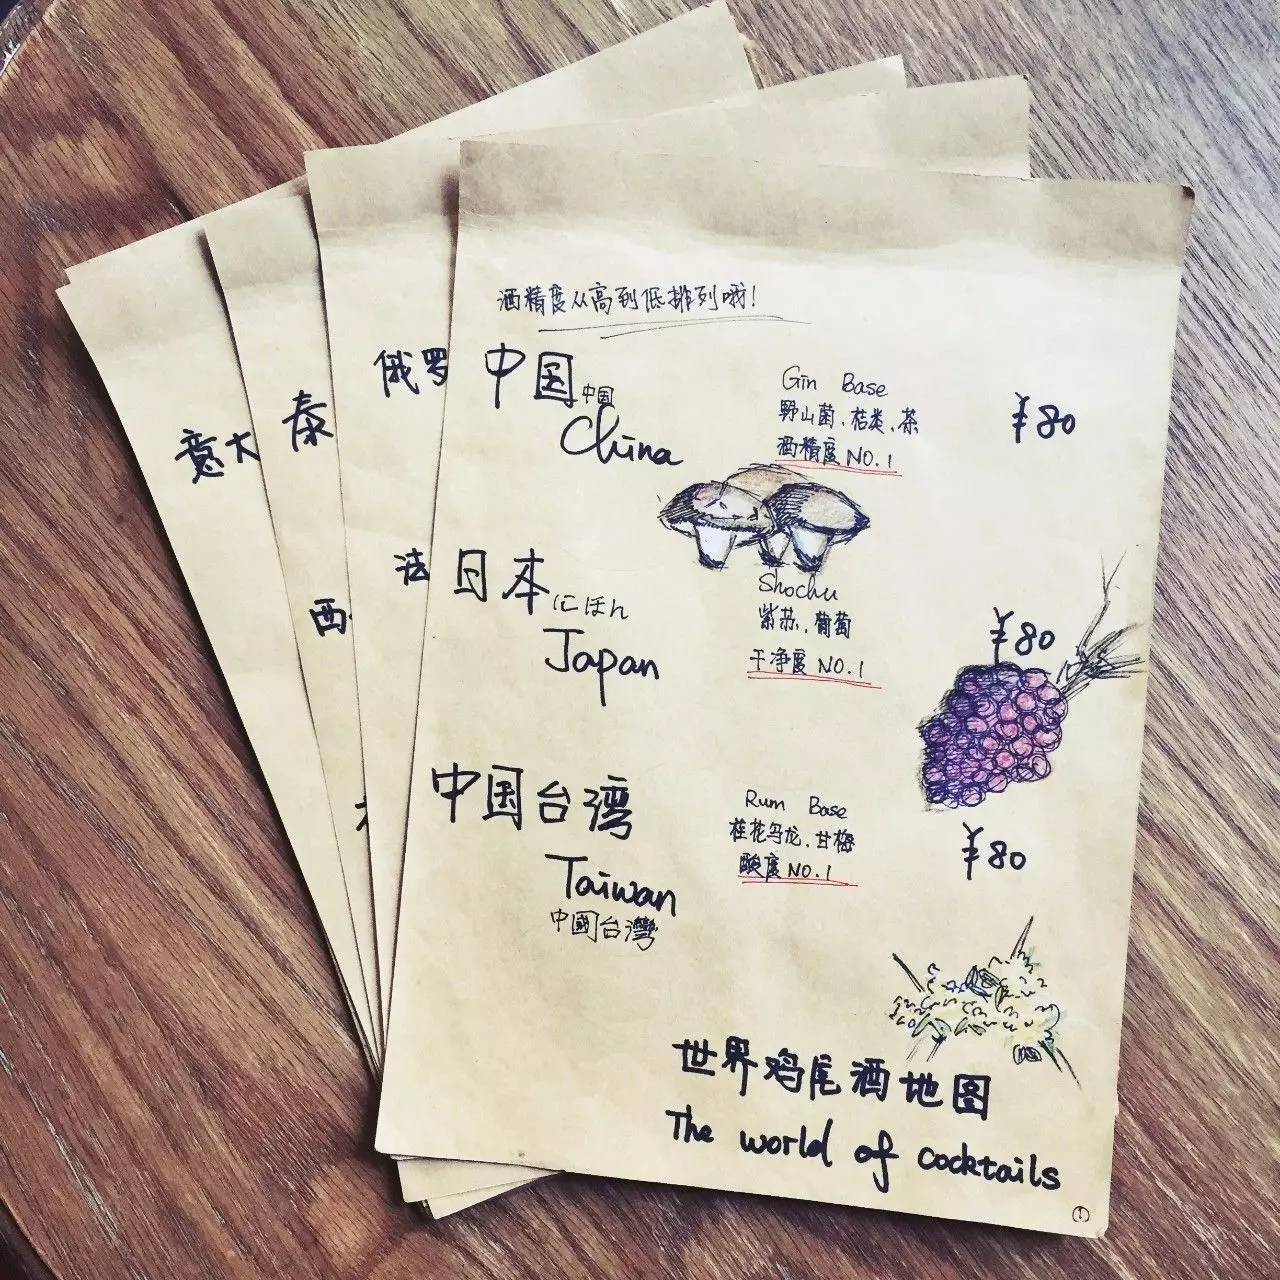 酒精度从高到低排列哦!
中国
中国
China
Gin Base
野山菌、桔类、茶
酒精度 NO.1
¥80
日本
にほん
Japan
Shochu
紫苏、葡萄
干净度 NO.1
¥80
中国台湾
Taiwan
中國台灣
Rum Base
桂花乌龙、甘梅
酸度 NO.1
¥80
世界鸡尾酒地图
The world of cocktails
1
俄罗
法
泰
西
意大